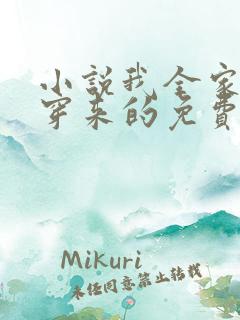 小説我全家
穿来的免費
Mikuri
未经同意禁止转载